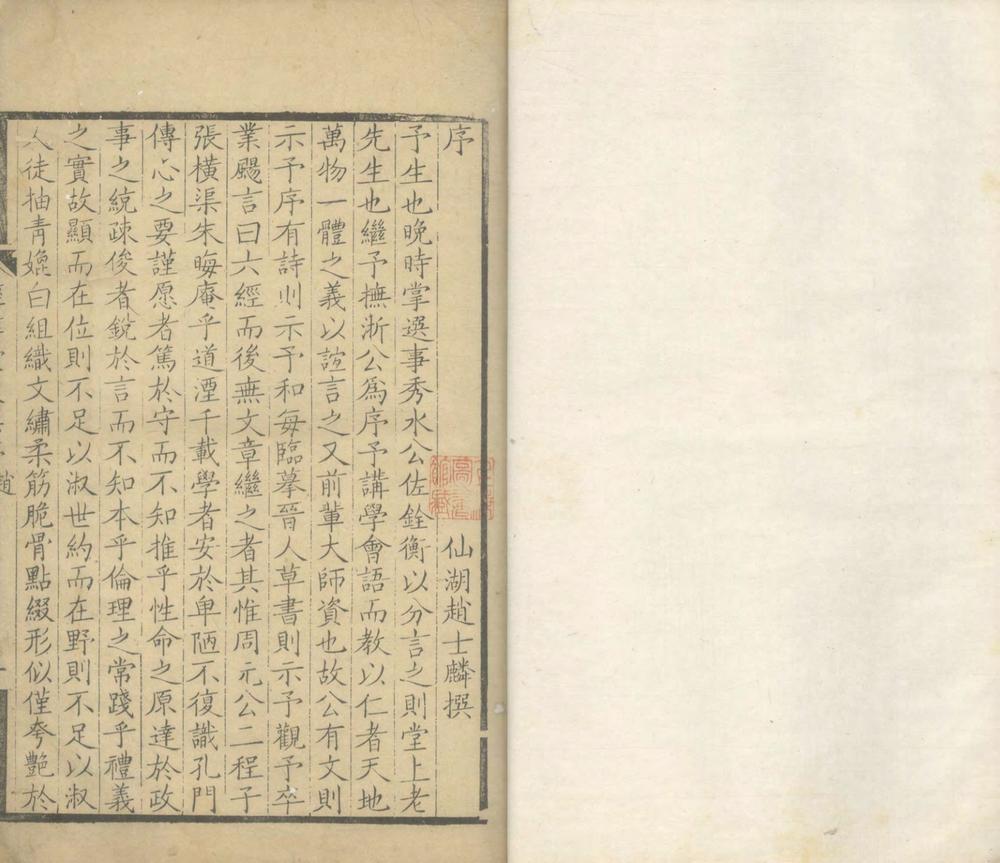 序
仙湖趙士麟撰
予生也晚時掌選事秀水公佐銓衡以分言之則堂上老
先生也繼予撫浙公為序予講學會語而教以仁者天地
萬物一體之義以誼言之又前輩大師資也故公有文則
示予序有詩則示予和每臨摹晉人草書則示予觀予卒
業颺言曰六經而後無文章繼之者其惟周元公二程子
張橫渠朱晦庵乎道湮千載學者安於卑陋不復識孔門
傳心之要謹愿者篤於守而不知推乎性命之原達於政
事之統疎俊者銳於言而不知本乎倫理之常踐乎禮義
之實故顯而在位則不足以淑世約而在野則不足以淑
人徒抽青媲白組織文繡柔筋脆骨點綴形似僅夸艷於
趙